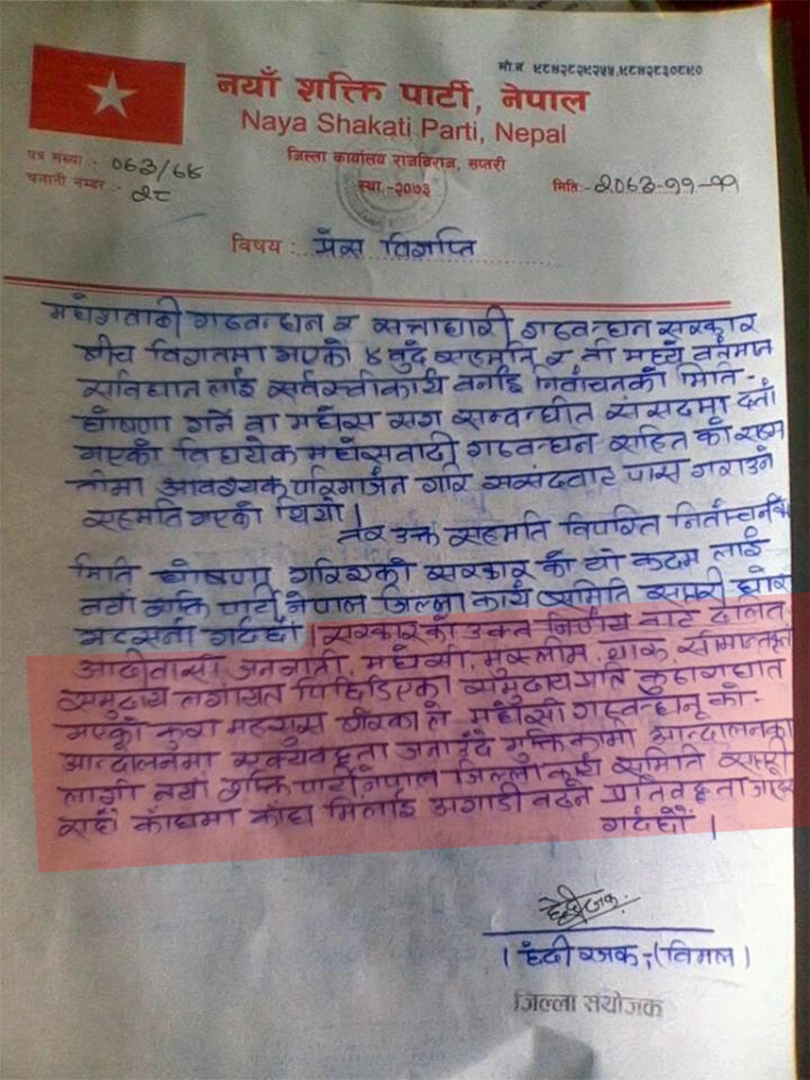 मो.न ९८४२८२९२५५,९८४२८३०८९०
नयाँ शक्ति पार्टी, नेपाल
Naya Shakati Parti, Nepal
जिल्ला कार्यालय राजबिराज, सप्तरी
पत्र संख्या :- ०७३/७४
स्था.-२०७३
मितिः- २०७३-११-११
चलानी नम्बर :- २८
विषय : प्रेस विज्ञप्ति
मधेशवादी गठवन्धन र सत्ताधारी गठवन्धन सरकार
बीच विगतमा भएको ४ वुदे सहमति र ती मध्ये वर्तमान
सविधान लाई सर्वस्वीकार्य वनाई निर्वाचनको मिति -
घोषणा गर्ने वा मधेस सग सम्वन्धीत संसदमा दर्ता
भएको विधयेक मधेसवादी गठवन्धन सहित को
आवश्यक परिमार्जन गरि ससंदवाट पास गराउने
सहमति भएको थियो ।
तर उक्त सहमति विपरित निर्वाचनको
मिति घोषणा गरिएको सरकार को यो कदम लाई
नयाँ शक्ति पार्टी नेपाल जिल्ला कार्य समिति सप्तरी घोर
भत्सर्ना गर्दछौं । सरकारको उक्त निर्णय वाट दलित,
आदीवासी जनजाती, मधेसी, मुस्लीम, थारू, सीमान्तकृत
समुदाय लगायत पिछिडिएका समुदाय प्रति कुठाराघात
भएको कुरा महसुस गरेकाले मधेसी गठवन्धन को -
आन्दोलनमा एक्यवद्धता जनाउदै मुक्तिकामी आन्दोलनका
लागी नयाँ शक्ति पार्टी नेपाल जिल्ला कार्य समिति सप्तरी
सधै काँधमा काँध मिलाई अगाडी वढ्ने प्रतिवद्धता जाहेर
गर्दछौं ।
जिल्ला संयोजक